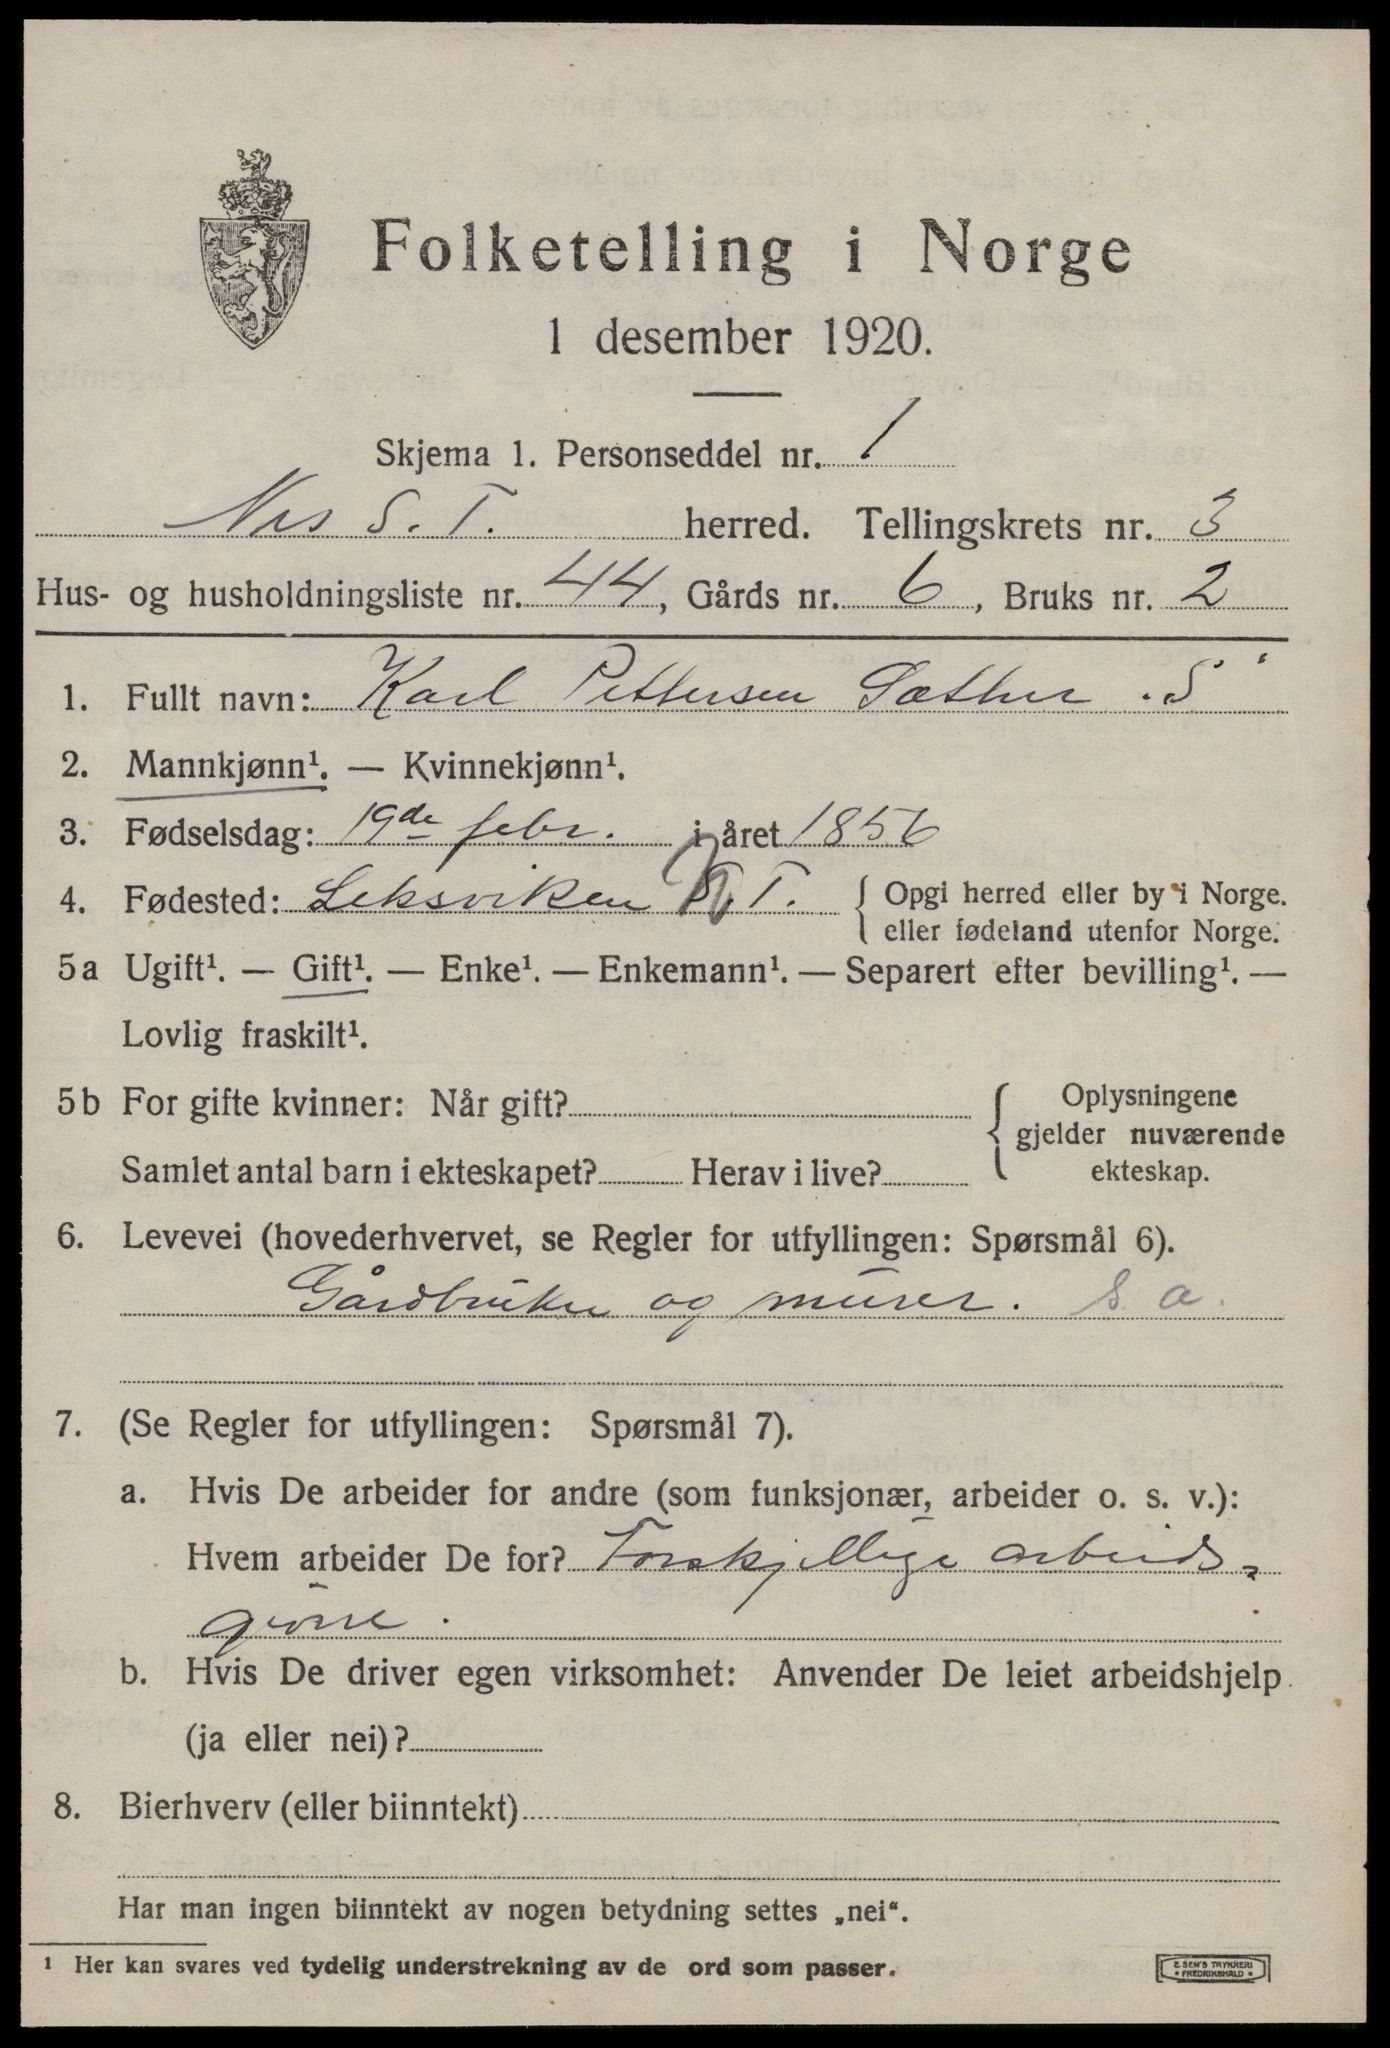 Folketelling i Norge
1 desember 1920.
Skjema 1. Personseddel nr. 1
Nes S. T. herred. Tellingskrets nr. 3
Hus- og husholdningsliste nr. 44, Gårds nr. 6, Bruks nr. 2
1. Fullt navn: Karl Pettersen Sæther. "S"
2. Mannkjønn¹. — Kvinnekjønn¹.
3. Fødselsdag: 19de febr. i året 1856
4. Fødested: Leksviken N. T. { Opgi herred eller by i Norge.
eller fødeland utenfor Norge.
5a Ugift¹. — Gift¹. — Enke¹. — Enkemann¹. — Separert efter bevilling¹. —
Lovlig fraskilt¹.
5b For gifte kvinner: Når gift? { Oplysningene
gjelder nuværende
Samlet antal barn i ekteskapet? Herav i live? ekteskap.
6. Levevei (hovederhvervet, se Regler for utfyllingen: Spørsmål 6).
Gårdbruker og murer. S. a.
7. (Se Regler for utfyllingen: Spørsmål 7).
a. Hvis De arbeider for andre (som funksjonær, arbeider o. s. v.):
Hvem arbeider De for? Forskjellige arbeids-
givere.
b. Hvis De driver egen virksomhet: Anvender De leiet arbeidshjelp
(ja eller nei)?
8. Bierhverv (eller biinntekt)
Har man ingen biinntekt av nogen betydning settes „nei“.
¹ Her kan svares ved tydelig understrekning av de ord som passer.
E. SEM'S TRYKKERI
• FREDRIKSHALD •